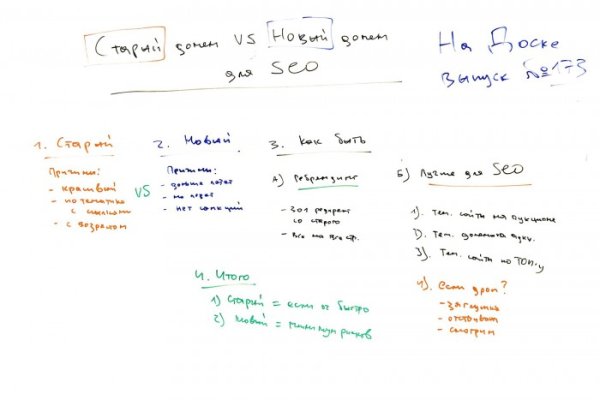 Старый домен VS Новый домен
для SEO
На Доске
выпуск №173
1. Старый
Причины:
- красивый
- по тематике
с ссылками
- с возрастом
VS
2. Новый
Причины:
- дольше
- не
- нет санкций
3. Как быть
А) Ребрендинг
- 301 редирект
со старого
- все на все стр.
Б) Лучше для SEO
1). Тем. сайты на аукционе
2). Тем. домены аукц.
3). Тем. сайты по ТОП-у
4). Если дроп?
- заглушка
- отстаиваем
- смотрим
4. Итого
1) Старый = если ок быстро
2) Новый = минимум рисков